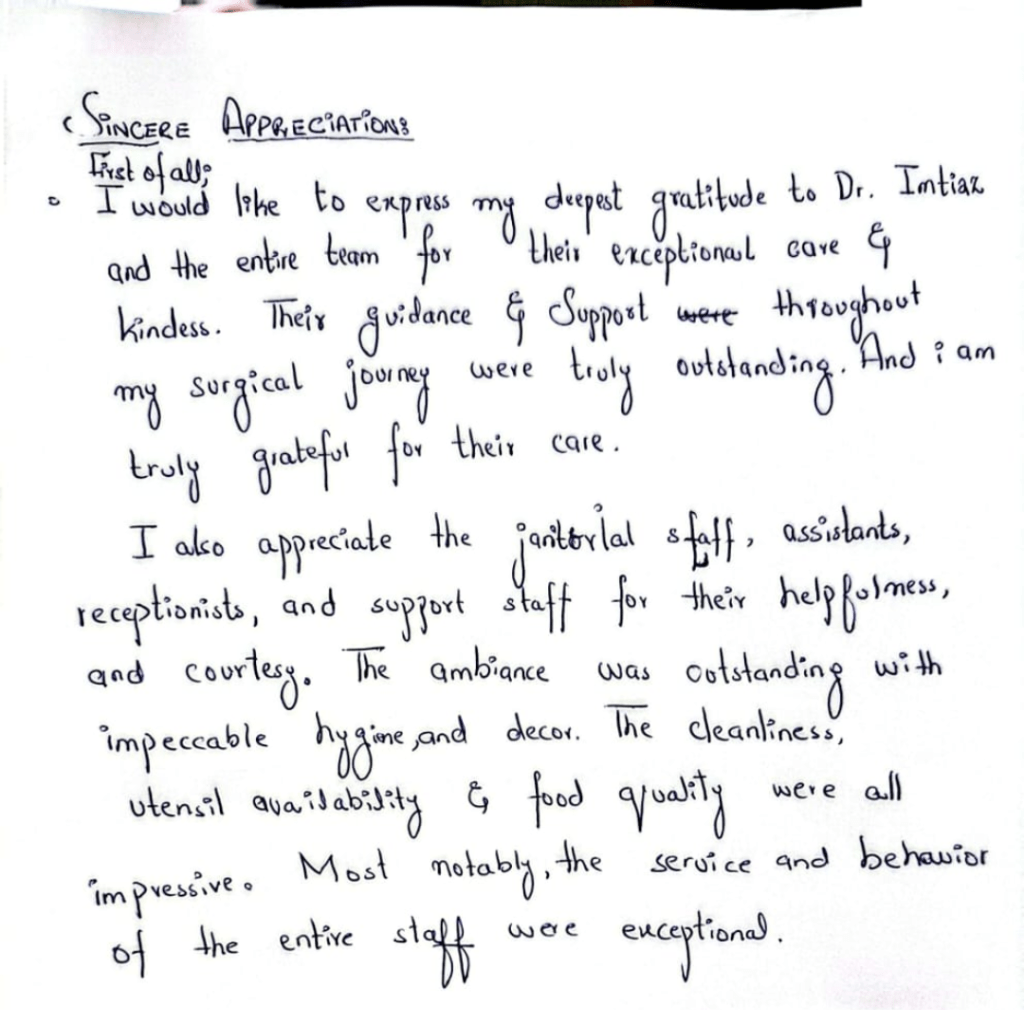 SINCERE APPRECIATIONS
First of all;
I would like to express my deepest gratitude to Dr. Imtiaz
and the entire team for their exceptional care &
kindess. Their guidance & Support were throughout
my surgical journey were truly outstanding. And i am
truly grateful for their care.
I also appreciate the janitorial staff, assistants,
receptionists, and support staff for their helpfulness,
and courtesy. The ambiance was outstanding with
impeccable hygine, and decor. The cleanliness,
utensil availability & food quality were all
impressive. Most notably, the service and behavior
of the entire staff were exceptional.